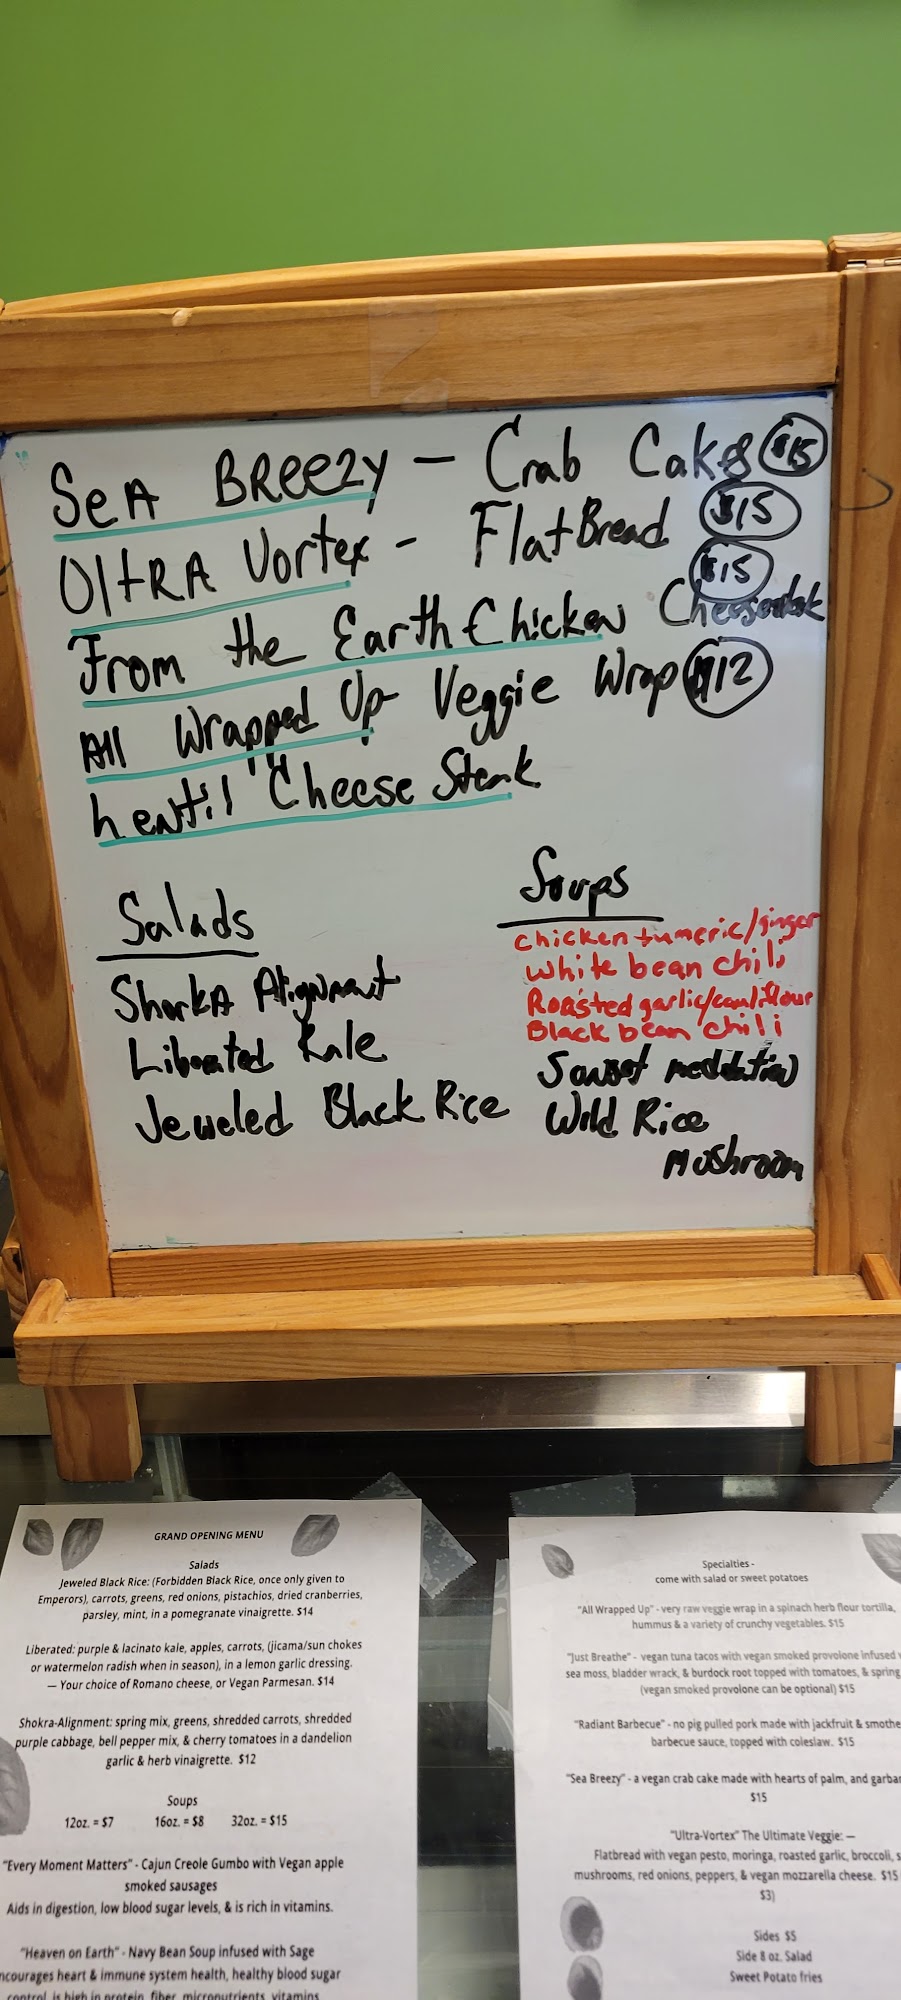 SeA BReezy - Crab Cakes $15
UltRA Vortex - FlatBread $15
$15
From the Earth Chicken Cheesesteak
All Wrapped Up Veggie Wrap $12
Lentil Cheese Steak
Salads
ShorkA Alignment
Liberated Kale
Jeweled Black Rice
Soups
chicken tumeric/ginger
White bean chili
Roasted garlic/cauliflour
Black bean chili
Sunset meditation
Wild Rice
Mushroom
GRAND OPENING MENU
Salads
Jeweled Black Rice: (Forbidden Black Rice, once only given to
Emperors), carrots, greens, red onions, pistachios, dried cranberries,
parsley, mint, in a pomegranate vinaigrette. $14
Liberated: purple & lacinato kale, apples, carrots, (jicama/sun chokes
or watermelon radish when in season), in a lemon garlic dressing.
— Your choice of Romano cheese, or Vegan Parmesan. $14
Shokra-Alignment: spring mix, greens, shredded carrots, shredded
purple cabbage, bell pepper mix, & cherry tomatoes in a dandelion
garlic & herb vinaigrette. $12
Soups
12oz. = $7 16oz. = $8 32oz. = $15
"Every Moment Matters" - Cajun Creole Gumbo with Vegan apple
smoked sausages
Aids in digestion, low blood sugar levels, & is rich in vitamins.
"Heaven on Earth" - Navy Bean Soup infused with Sage
ncourages heart & immune system health, healthy blood sugar
control, is high in protein, fiber, micronutrients, vitamins
Specialties -
come with salad or sweet potatoes
"All Wrapped Up" - very raw veggie wrap in a spinach herb flour tortilla,
hummus & a variety of crunchy vegetables. $15
"Just Breathe" - vegan tuna tacos with vegan smoked provolone infused
sea moss, bladder wrack, & burdock root topped with tomatoes, & spring
(vegan smoked provolone can be optional) $15
"Radiant Barbecue" - no pig pulled pork made with jackfruit & smothe
barbecue sauce, topped with coleslaw. $15
"Sea Breezy" - a vegan crab cake made with hearts of palm, and garba
$15
"Ultra-Vortex" The Ultimate Veggie: —
Flatbread with vegan pesto, moringa, roasted garlic, broccoli, s
mushrooms, red onions, peppers, & vegan mozzarella cheese. $15
$3)
Sides $5
Side 8 oz. Salad
Sweet Potato fries